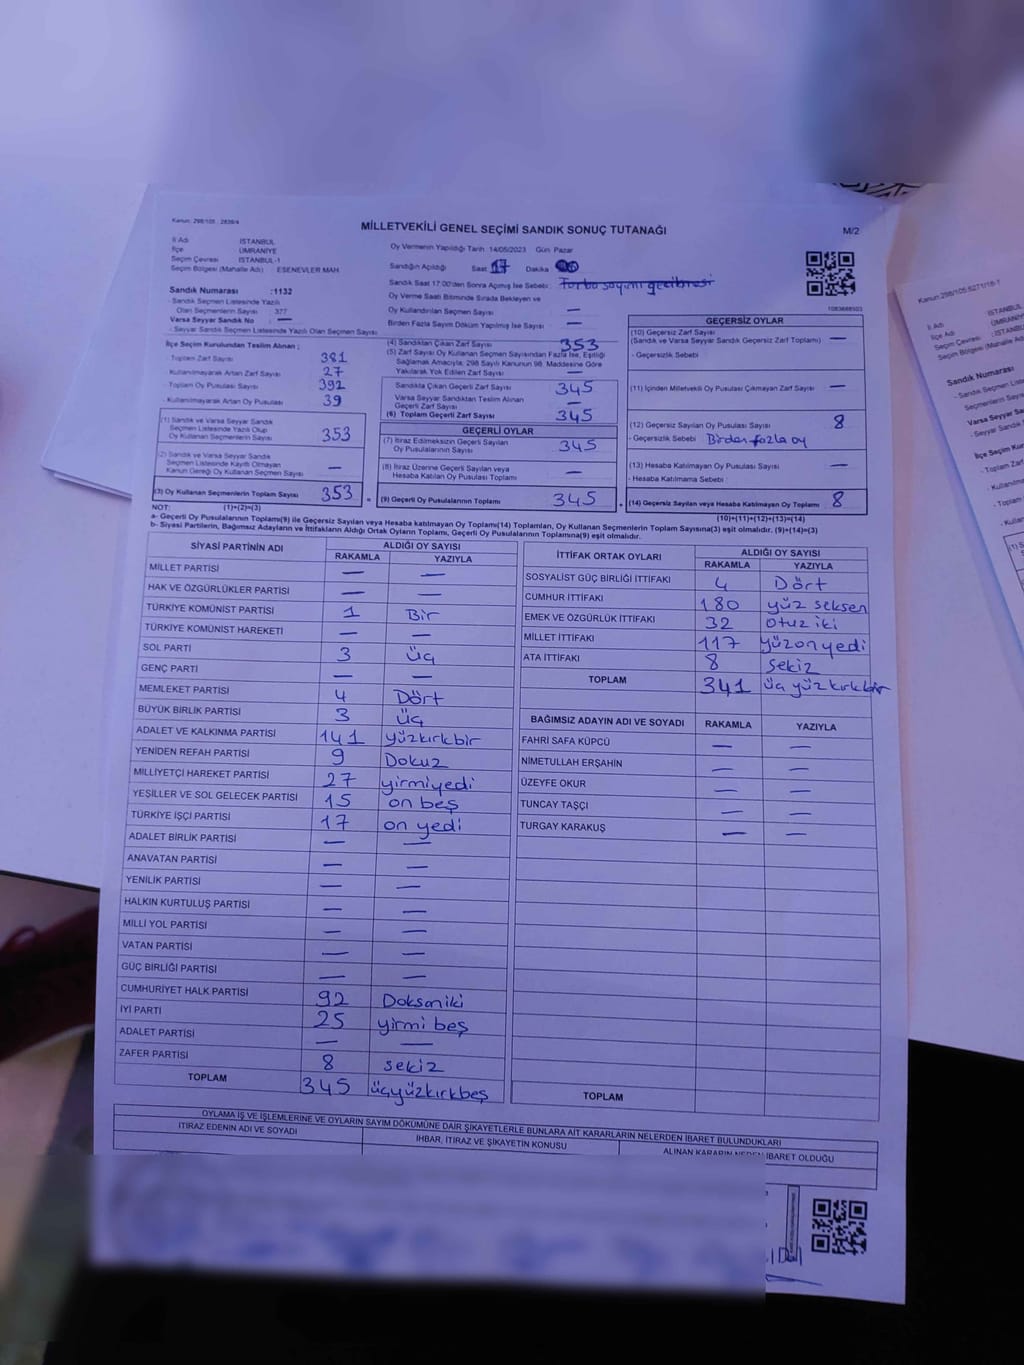 Kanun: 298/105 - 2839/4
MİLLETVEKİLİ GENEL SEÇİMİ SANDIK SONUÇ TUTANAĞI
M/2
İl Adı : İSTANBUL
İlçe : ÜMRANİYE
Seçim Çevresi : İSTANBUL-1
Seçim Bölgesi (Mahalle Adı) : ESENEVLER MAH
Sandık Numarası :1132
- Sandık Seçmen Listesinde Yazılı
Olan Seçmenlerin Sayısı : 377
Varsa Seyyar Sandık No : —
- Seyyar Sandık Seçmen Listesinde Yazılı Olan Seçmen Sayısı
İlçe Seçim Kurulundan Teslim Alınan ;
- Toplam Zarf Sayısı 381
- Kullanılmayarak Artan Zarf Sayısı 27
- Toplam Oy Pusulası Sayısı 392
- Kullanılmayarak Artan Oy Pusulası 39
(1) Sandık ve Varsa Seyyar Sandık
Seçmen Listesinde Yazılı Olup
Oy Kullanan Seçmenlerin Sayısı 353
(2) Sandık ve Varsa Seyyar Sandık
Seçmen Listesinde Kayıtlı Olmayan
Kanun Gereği Oy Kullanan Seçmen Sayısı —
(3) Oy Kullanan Seçmenlerin Toplam Sayısı 353
Oy Vermenin Yapıldığı Tarih :14/05/2023 Gün: Pazar
Sandığın Açıldığı Saat 17 Dakika
Sandık Saat 17:00'den Sonra Açılmış İse Sebebi :
Oy Verme Saati Bitiminde Sırada Bekleyen ve
Oy Kullandırılan Seçmen Sayısı —
Birden Fazla Sayım Döküm Yapılmış İse Sayısı —
(4) Sandıktan Çıkan Zarf Sayısı 353
(5) Zarf Sayısı Oy Kullanan Seçmen Sayısından Fazla İse, Eşitliği
Sağlamak Amacıyla; 298 Sayılı Kanunun 98. Maddesine Göre
Yakılarak Yok Edilen Zarf Sayısı —
Sandıkta Çıkan Geçerli Zarf Sayısı 345
Varsa Seyyar Sandıktan Teslim Alınan
Geçerli Zarf Sayısı —
(6) Toplam Geçerli Zarf Sayısı 345
GEÇERLİ OYLAR
(7) İtiraz Edilmeksizin Geçerli Sayılan
Oy Pusulalarının Sayısı 345
(8) İtiraz Üzerine Geçerli Sayılan veya
Hesaba Katılan Oy Pusulası Toplamı —
(9) Geçerli Oy Pusulalarının Toplamı 345
1083668503
GEÇERSİZ OYLAR
(10) Geçersiz Zarf Sayısı
(Sandık ve Varsa Seyyar Sandık Geçersiz Zarf Toplamı) —
- Geçersizlik Sebebi
(11) İçinden Milletvekili Oy Pusulası Çıkmayan Zarf Sayısı —
(12) Geçersiz Sayılan Oy Pusulası Sayısı 8
- Geçersizlik Sebebi Birden fazla oy
(13) Hesaba Katılmayan Oy Pusulası Sayısı —
- Hesaba Katılmama Sebebi
(14) Geçersiz Sayılan veya Hesaba Katılmayan Oy Pusulası Toplamı 8
NOT: (1)+(2)=(3)
(10)+(11)+(12)+(13)=(14)
a- Geçerli Oy Pusulalarının Toplamı(9) ile Geçersiz Sayılan veya Hesaba katılmayan Oy Toplamı(14) Toplamları, Oy Kullanan Seçmenlerin Toplam Sayısına(3) eşit olmalıdır. (9)+(14)=(3)
b- Siyasi Partilerin, Bağımsız Adayların ve İttifakların Aldığı Ortak Oyların Toplamı, Geçerli Oy Pusulalarının Toplamına(9) eşit olmalıdır.
SİYASİ PARTİNİN ADI ALDIĞI OY SAYISI
RAKAMLA YAZIYLA
MİLLET PARTİSİ — —
HAK VE ÖZGÜRLÜKLER PARTİSİ — —
TÜRKİYE KOMÜNİST PARTİSİ 1 Bir
TÜRKİYE KOMÜNİST HAREKETİ — —
SOL PARTİ 3 üç
GENÇ PARTİ — —
MEMLEKET PARTİSİ 4 Dört
BÜYÜK BİRLİK PARTİSİ 3 üç
ADALET VE KALKINMA PARTİSİ 141 yüzkırkbir
YENİDEN REFAH PARTİSİ 9 Dokuz
MİLLİYETÇİ HAREKET PARTİSİ 27 yirmiyedi
YEŞİLLER VE SOL GELECEK PARTİSİ 15 on beş
TÜRKİYE İŞÇİ PARTİSİ 17 on yedi
ADALET BİRLİK PARTİSİ — —
ANAVATAN PARTİSİ — —
YENİLİK PARTİSİ — —
HALKIN KURTULUŞ PARTİSİ — —
MİLLİ YOL PARTİSİ — —
VATAN PARTİSİ — —
GÜÇ BİRLİĞİ PARTİSİ — —
CUMHURİYET HALK PARTİSİ 92 Doksaniki
İYİ PARTİ 25 yirmi beş
ADALET PARTİSİ — —
ZAFER PARTİSİ 8 sekiz
TOPLAM 345 üçyüzkırkbeş
İTTİFAK ORTAK OYLARI ALDIĞI OY SAYISI
RAKAMLA YAZIYLA
SOSYALİST GÜÇ BİRLİĞİ İTTİFAKI 4 Dört
CUMHUR İTTİFAKI 180 yüz seksen
EMEK VE ÖZGÜRLÜK İTTİFAKI 32 otuz iki
MİLLET İTTİFAKI 117 yüzonyedi
ATA İTTİFAKI 8 sekiz
TOPLAM 341 üç yüz kırkbir
BAĞIMSIZ ADAYIN ADI VE SOYADI RAKAMLA YAZIYLA
FAHRİ SAFA KÜPCÜ — —
NİMETULLAH ERŞAHİN — —
ÜZEYFE OKUR — —
TUNCAY TAŞÇI — —
TURGAY KARAKUŞ — —
TOPLAM
OYLAMA İŞ VE İŞLEMLERİNE VE OYLARIN SAYIM DÖKÜMÜNE DAİR ŞİKAYETLERLE BUNLARA AİT KARARLARIN NELERDEN İBARET BULUNDUKLARI
İTİRAZ EDENİN ADI VE SOYADI İHBAR, İTİRAZ VE ŞİKAYETİN KONUSU ALINAN KARARIN NEDEN İBARET OLDUĞU
Kanun:298/105 6271/18-1
İl Adı : İSTANBUL
İlçe : ÜMRANİYE
Seçim Çevresi
Seçim Bölgesi (Mahalle Adı)
Sandık Numarası
- Sandık Seçmen
Seçmenlerin Sayısı
Varsa Seyyar
- Seyyar Sandık
İlçe Seçim Kurulundan
- Toplam Zarf
- Kullanılmayarak
- Toplam